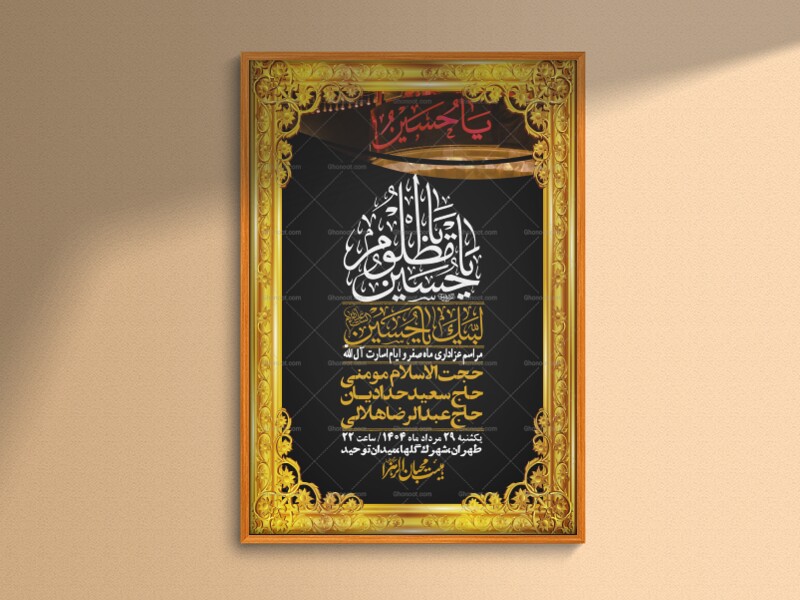 یا حسین
یا مظلوم
یا حسین
لبیک یا حسین
مراسم عزاداری ماه صفر و ایام اسارت آل الله
حجت الاسلام مومنی
حاج سعید حدادیان
حاج عبدالرضا هلالی
یکشنبه ۲۹ مرداد ماه ۱۴۰۴ / ساعت ۲۲
طهران، شهرک گلها، میدان توحید
هیئت محبان الزهرا
Ghonoot.com